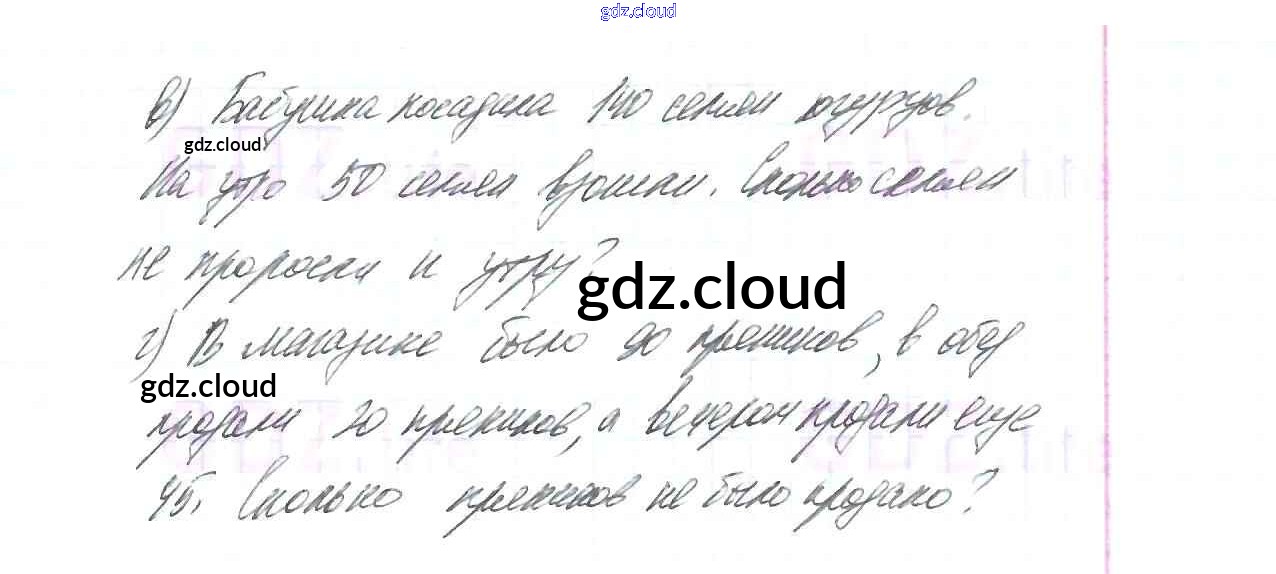 gdz.cloud
в) Бабушка посадила 140 семян огурцов.
gdz.cloud
На утро 50 семян взошли. Сколько семян
не проросли к утру?
gdz.cloud
г) В магазине было 90 пряников, в обед
gdz.cloud
продали 20 пряников, а вечером продали еще
45. Сколько пряников не было продано?